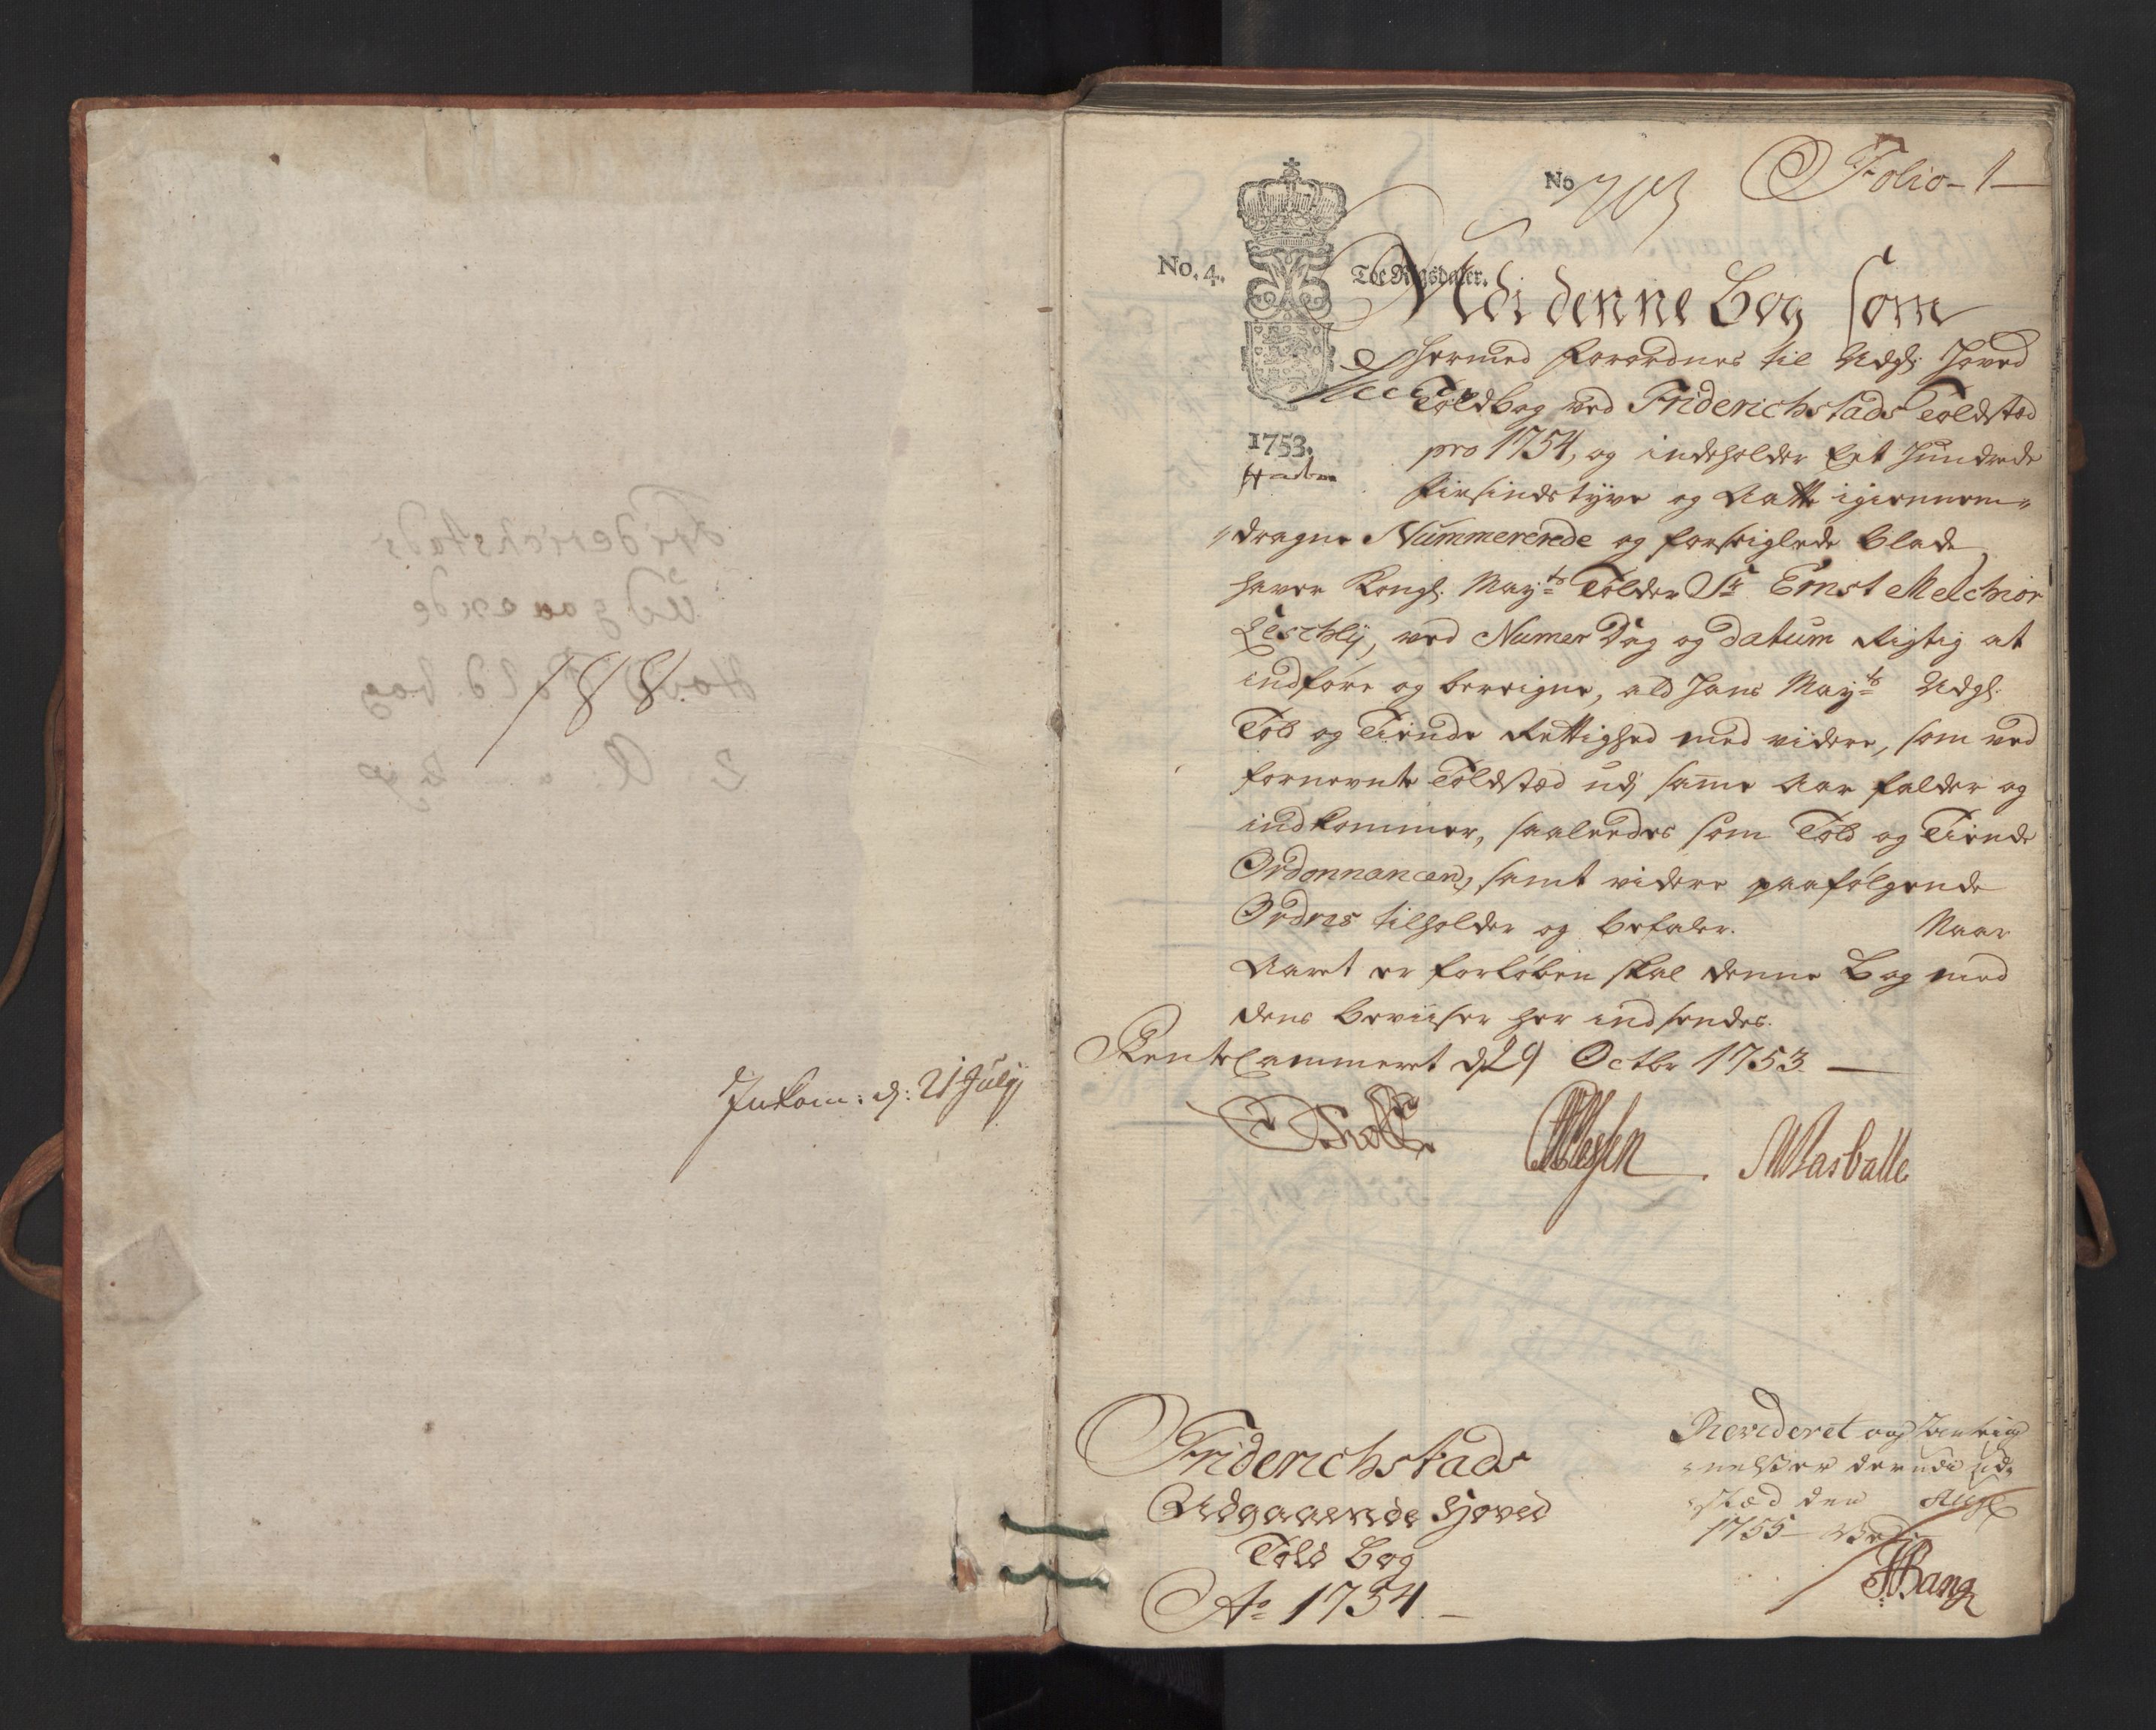 188.
Inkom: d: 21 July
No
Folio - 1 -
No. 4.
Toe Rigsdaler.
1753.
Udi denne Bog som
hermed forordnes til Udg: Hoved
Toldbog ved Friderichstads Toldsted
pro 1754, og indeholder Eet Hundrede
Firsindstyve og Aatte igiennem-
dragne Nummererede og forseiglede blade,
haver Kongl: May:ts Tolder Sr Ernst Melchior
ved Numer Dag og Datum Rigtig at
indføre og beregne, ald Hans May:ts Udg:
Told og Tiende Rettighed med videre, som ved
fornevnte Toldsted udj same Aar falder og
indkommer, saaledes som Told og Tiende
Ordonnancen, samt videre paafølgende
Ordres tilholder og befaler. Naar
Aaret er forløben skal denne Bog med
dens beviiser her indsendes.
RenteCammeret d 29 Octbr 1753. —
Friderichstads
Udgaaende Hoved
Told Bog
Ao 1754. —
Revideret og
derudi ud-
sted den Aug
1755
Bang